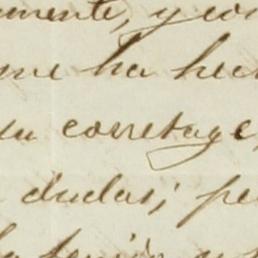 mente, y con
me ha hec
su corretage,
dudas; pe